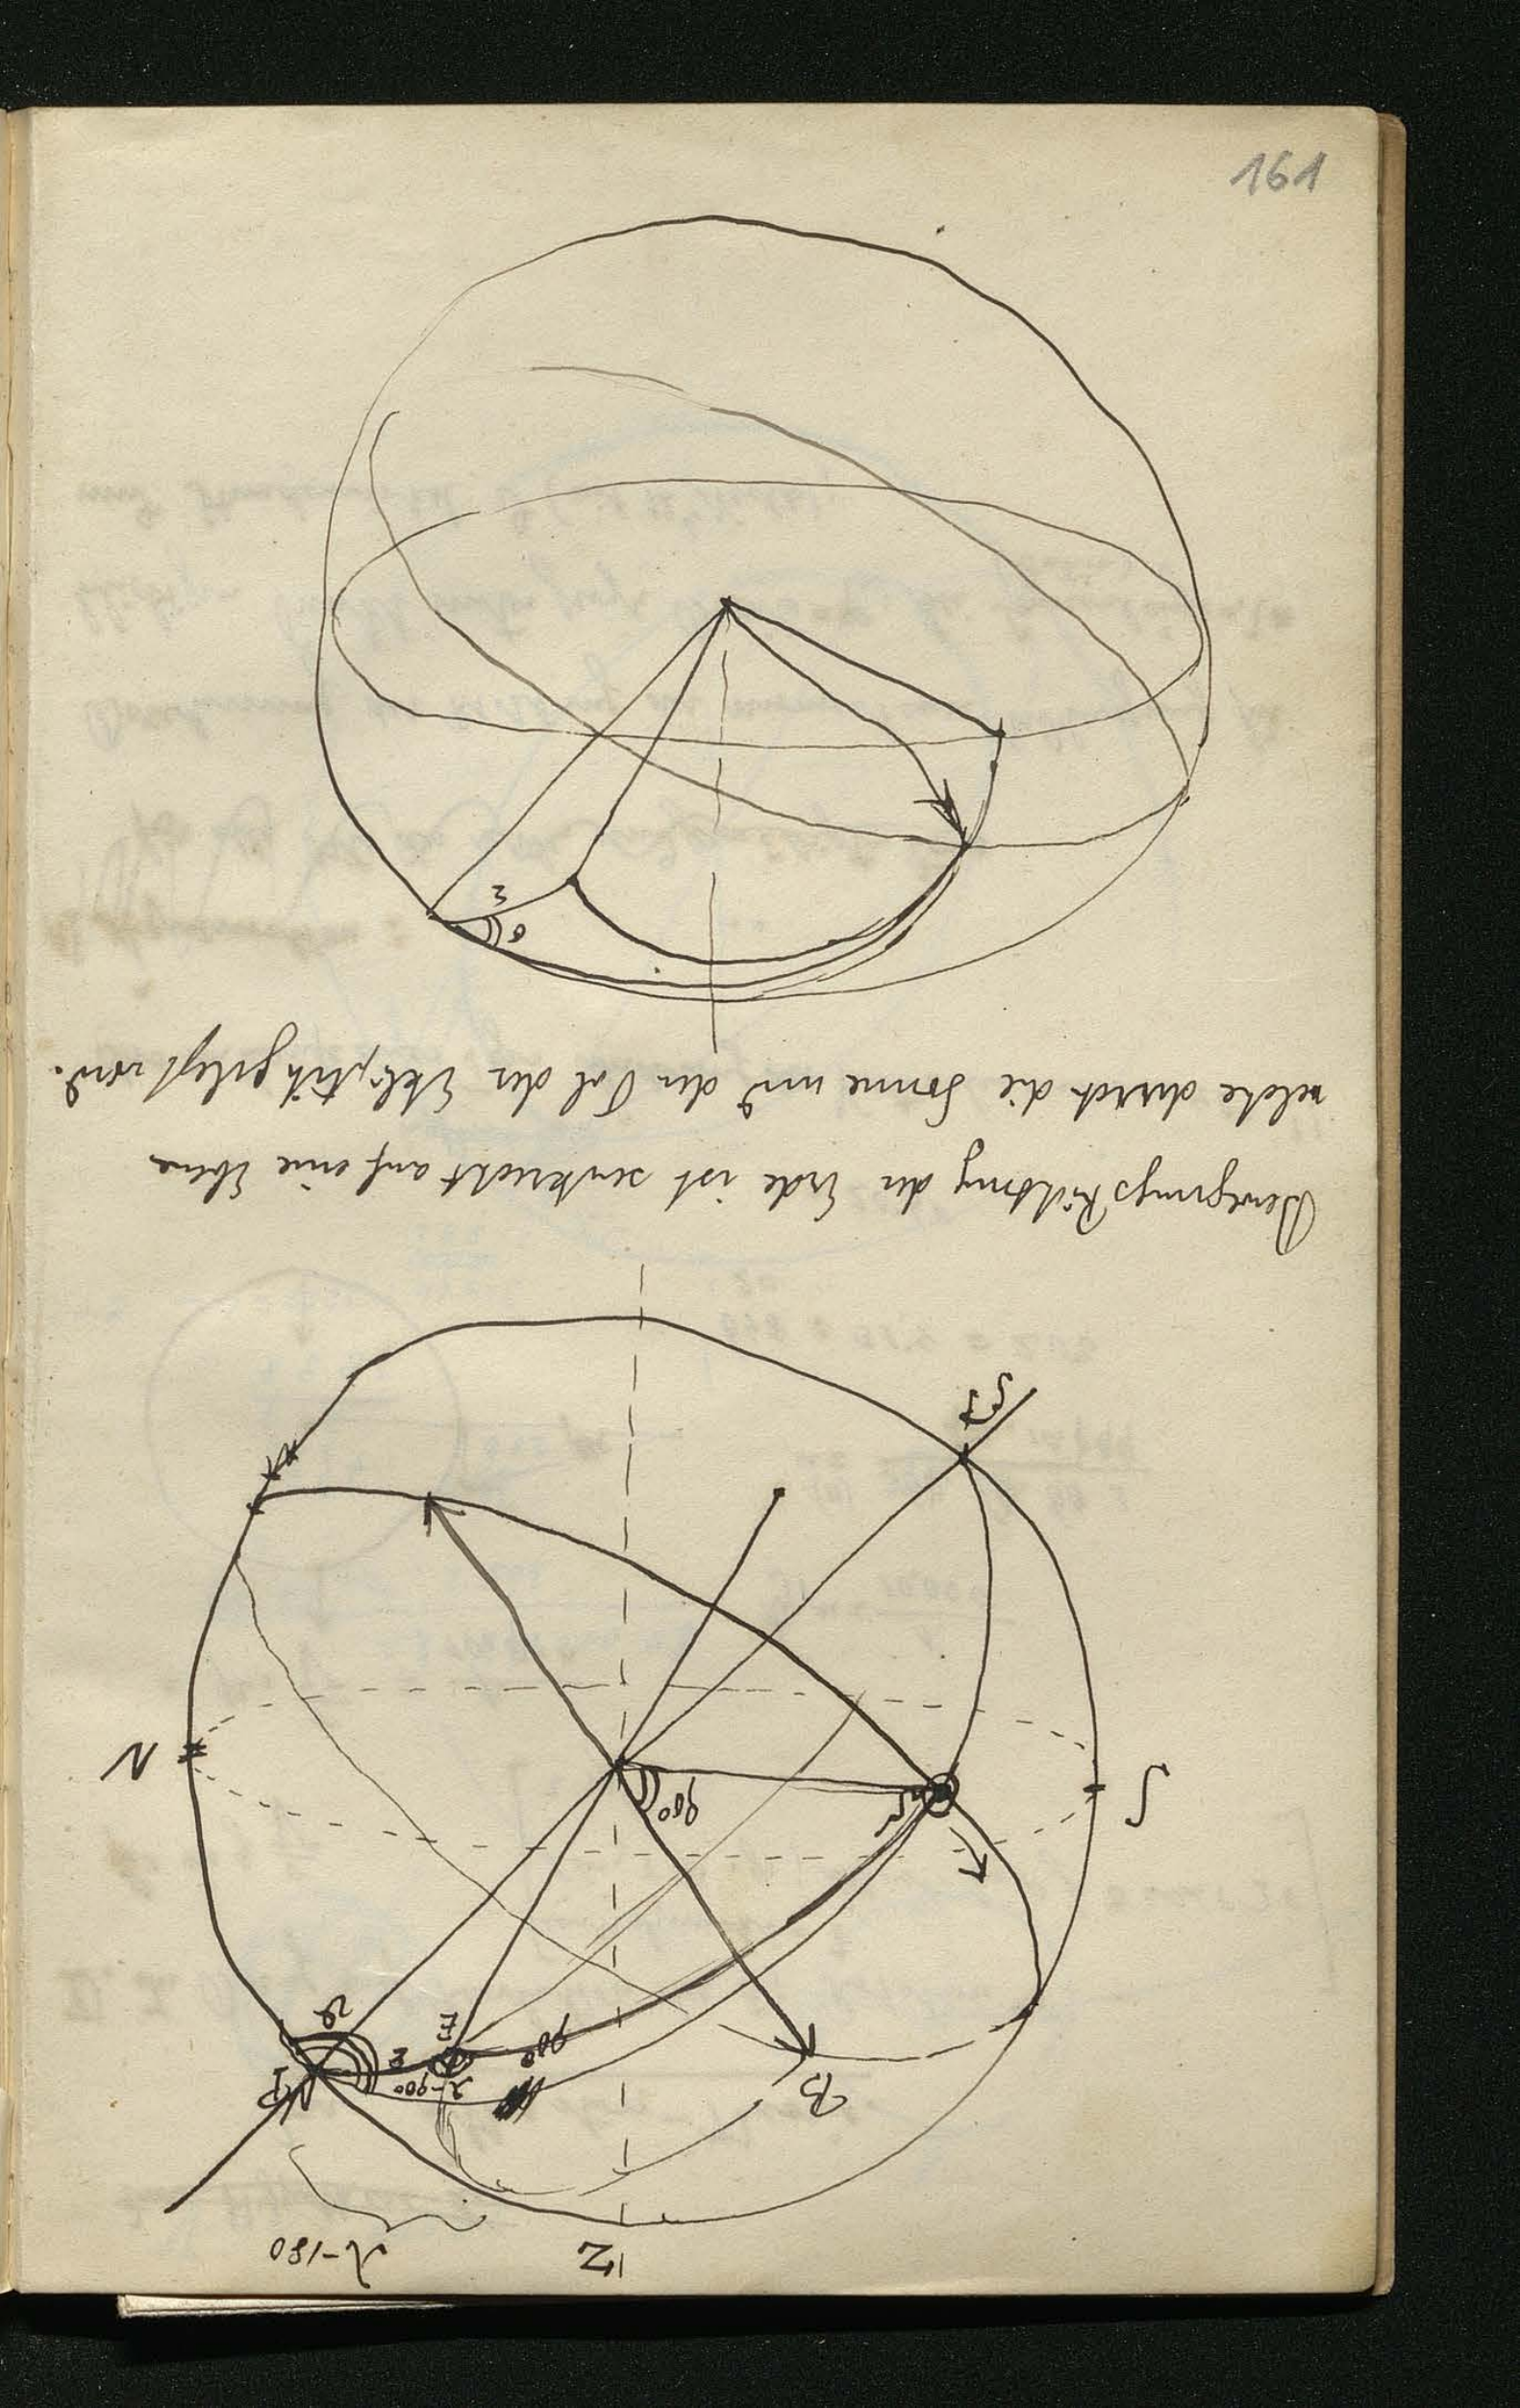 161
Z
λ-180
B
P
λ-90°
90°
ε
E
ϑ
S
90°
N
Bewegungs Richtung der Erde ist senkrecht auf eine Ebene
welche durch die Sonne und den Pol der Ekliptik gelegt wird.
σ
ε